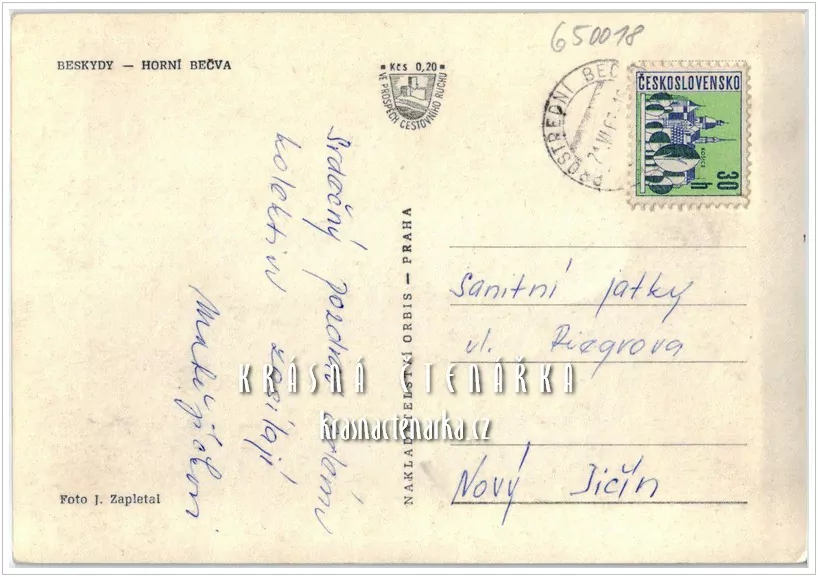 650018
BESKYDY — HORNÍ BEČVA
Kčs 0,20
VE PROSPĚCH CESTOVNÍHO RUCHU
PROSTŘEDNÍ BEČ
ČESKOSLOVENSKO
KOŠICE
30 h
Srdečný pozdrav
kolektiv zasílají
NAKLADATELSTVÍ ORBIS — PRAHA
Sanitní jatky
ul. Riegrova
Nový Jičín
KRÁSNÁ ČTENÁŘKA
krasnactenarka.cz
Foto J. Zapletal